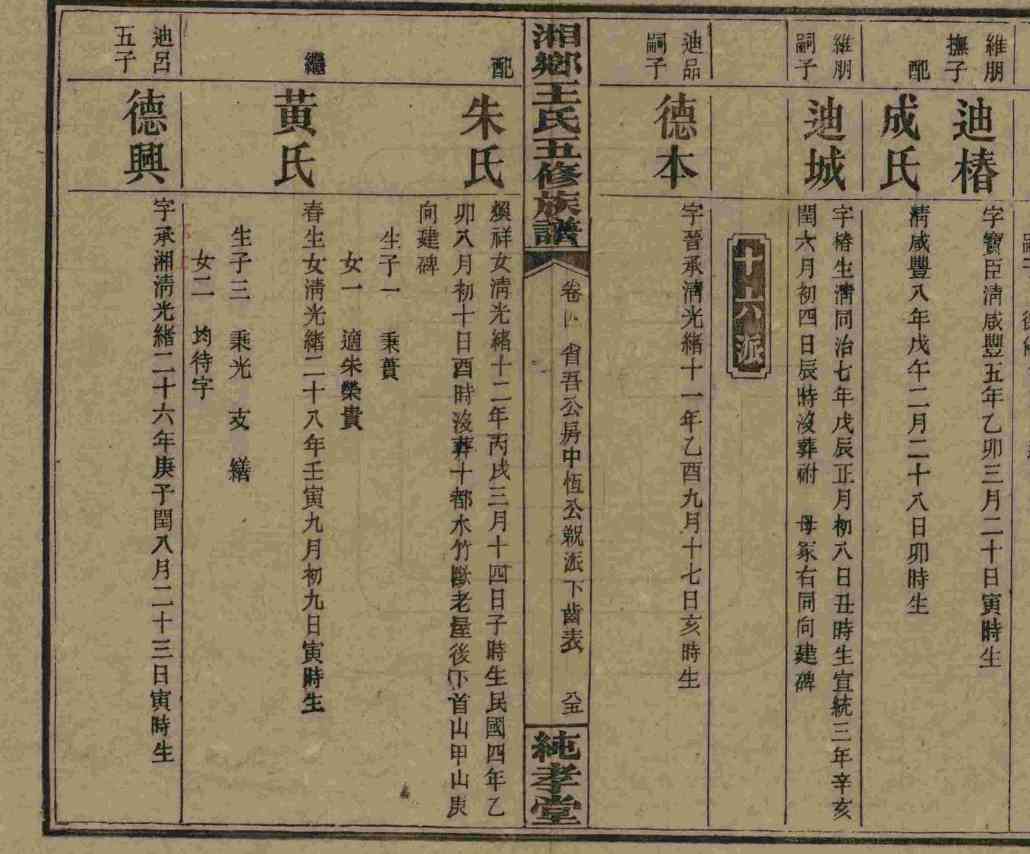 維朋
撫子
迪椿
字寶臣淸咸豐五年乙卯三月二十日寅時生
配
成氏
淸咸豐八年戊午二月二十八日卯時生
維朋
嗣子
迪城
字椿生淸同治七年戊辰正月初八日丑時生宣統三年辛亥
閏六月初四日辰時沒葬祔 母冢右同向建碑
十六派
迪品
嗣子
德本
字晉承淸光緒十一年乙酉九月十七日亥時生
湘鄉王氏五修族譜
卷四 省吾公房中恆公親派下齒表 八五
純孝堂
配
朱氏
嬪祥女淸光緒十二年丙戌三月十四日子時生民國四年乙
卯八月初十日酉時沒葬十都水竹㘰老屋後下首山甲山庚
向建碑
生子一 秉蕢
女一 適朱榮貴
繼
黃氏
春生女淸光緒二十八年壬寅九月初九日寅時生
生子三 秉光 支 繕
女二 均待字
迪呂
五子
德興
字承湘淸光緒二十六年庚子閏八月二十三日寅時生